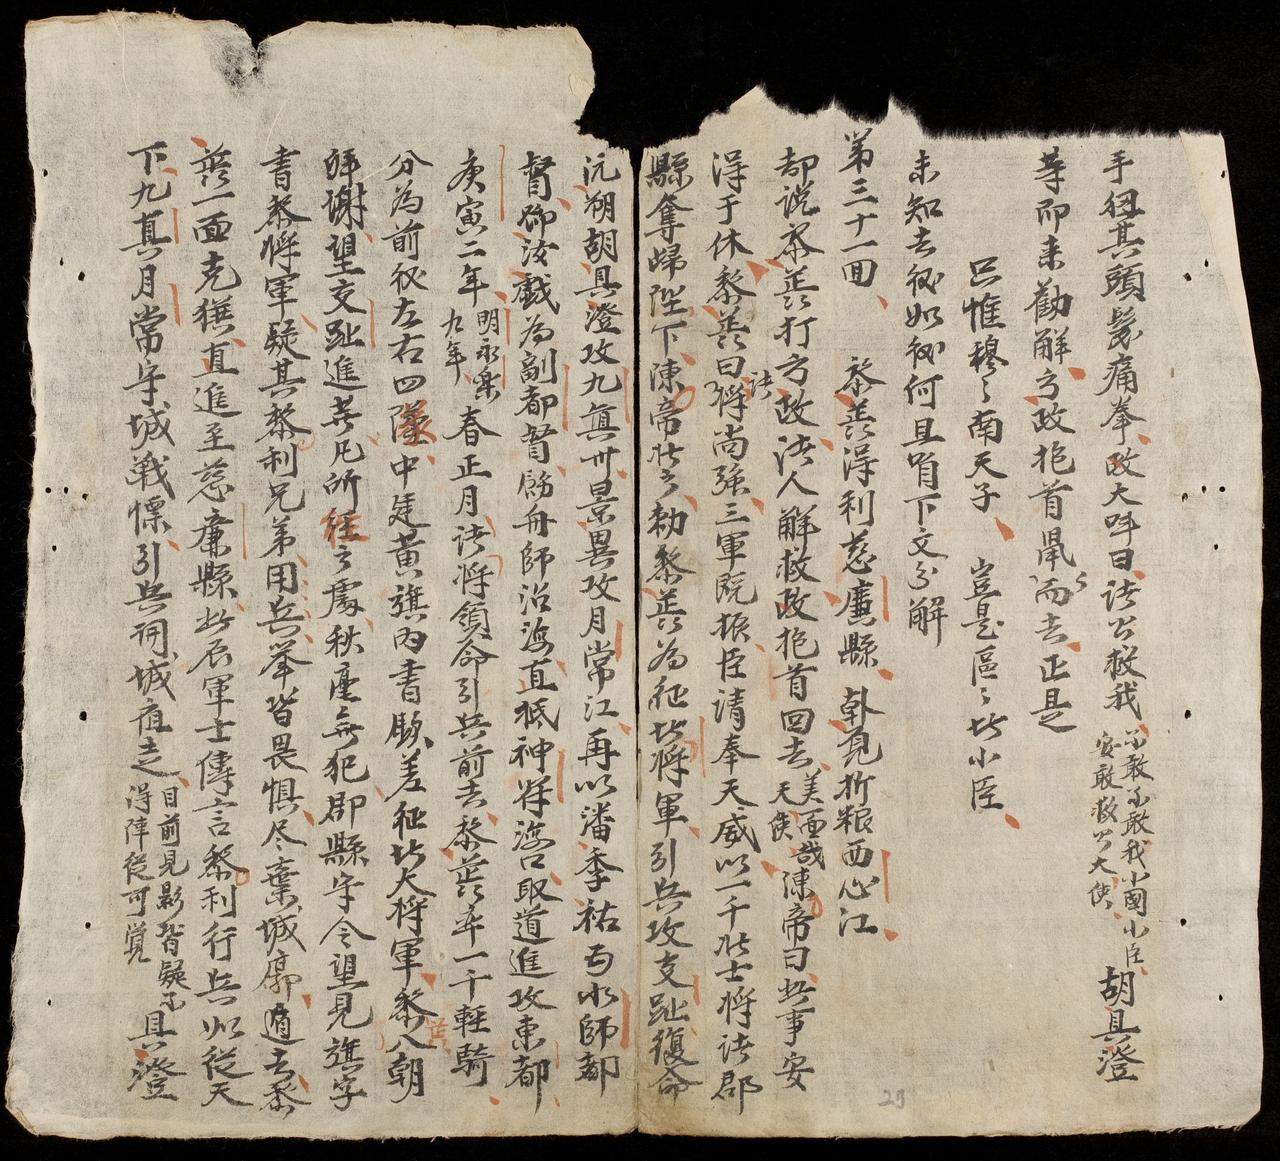 手扭其頭髮痛拳政大呌曰諸公救我不敢不敢我小國小臣安敢救公大使胡具澄
等即來勸解方政抱首鼠而去正是
只惟穆々南天子豈是區々北小臣
未知去後如後何且省下文分解
第三十一回黎善得利慈廉縣
却說黎善打方政諸人解救政抱首回去美哉天使陳帝曰此事安
得于休黎善曰將尚強三軍既振臣請奉天威以一千壯士將諸郡
縣奪歸陛下陳帝壯之勅黎善為征北將軍引兵攻交趾復命
阮朔胡具澄攻九真卅景異攻月常江再以潘季祐為水師都
督鄧汝戲為副都督飭舟師沿海直抵神符海口取道進攻東都
庚寅二年明永樂九年春正月諸將領命引兵前去黎善率一千輕騎
分為前後左右四隊中建黃旗內書欽差征北大將軍黎八朝
拜謝望交趾進發凡所經之處秋毫無犯郡縣守令望見旗字
書黎將軍疑其黎利兄弟用兵舉皆畏懼尽棄城廓遁去黎
善一面克獲直進至慈廉縣此辰軍士傳言黎利行兵從天
下九真月常守城戰慄引兵開城疽走目前見影皆疑不得陣從可覚具澄